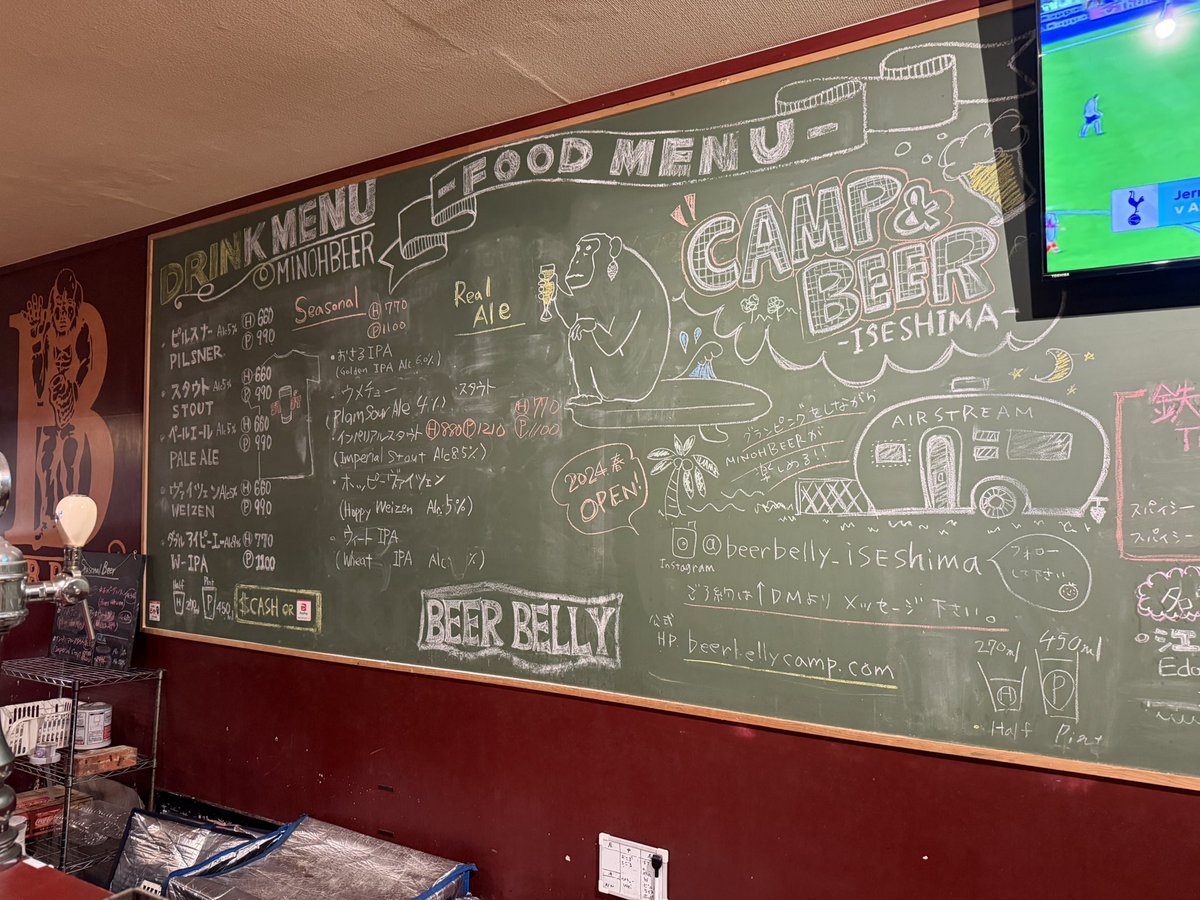 DRINK MENU
MINOHBEER
- FOOD MENU -
ピルスナー Alc5% Ⓗ660
PILSNER Ⓟ990
スタウト Alc5% Ⓗ660
STOUT Ⓟ990
ペールエール Alc5% Ⓗ660
PALE ALE Ⓟ990
ヴァイツェン Alc5% Ⓗ660
WEIZEN Ⓟ990
ダブルアイピーエー Alc9% Ⓗ770
W-IPA Ⓟ1100
Half Pint
H P 450ml
$CASH OR
Seasonal Ⓗ770
Ⓟ1100
・おさるIPA
(Golden IPA Alc 6.0%)
・ウメチュー
(Plam Sour Ale 4%)
・インペリアルスタウト Ⓗ880 Ⓟ1210
(Imperial Stout Alc 8.5%)
・ホッピーヴァイツェン
(Hoppy Weizen Alc. 5%)
・ウィート IPA
(Wheat IPA Alc %)
Real
Ale
スタウト
Ⓗ770
Ⓟ1,100
BEER BELLY
CAMP &
BEER
-ISESHIMA-
2024春
OPEN!
グランピングをしながら
MINOHBEERが
楽しめる!!
AIRSTREAM
Instagram
@beerbelly_iseshima
フォロー
して下さい
ご予約は↑DMより メッセージ下さい。
公式
HP. beerbellycamp.com
270ml 450ml
H P
Half Pint
鉄
スパイシー
スパイシー
名
・江
Eda
Jerm
v A
TOSHIBA
B